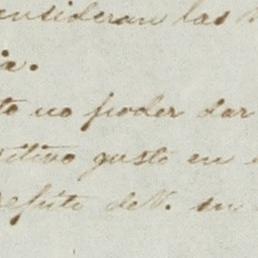 consideran las
ia.
to no poder dar
sitivo gusto en
repito de V. su